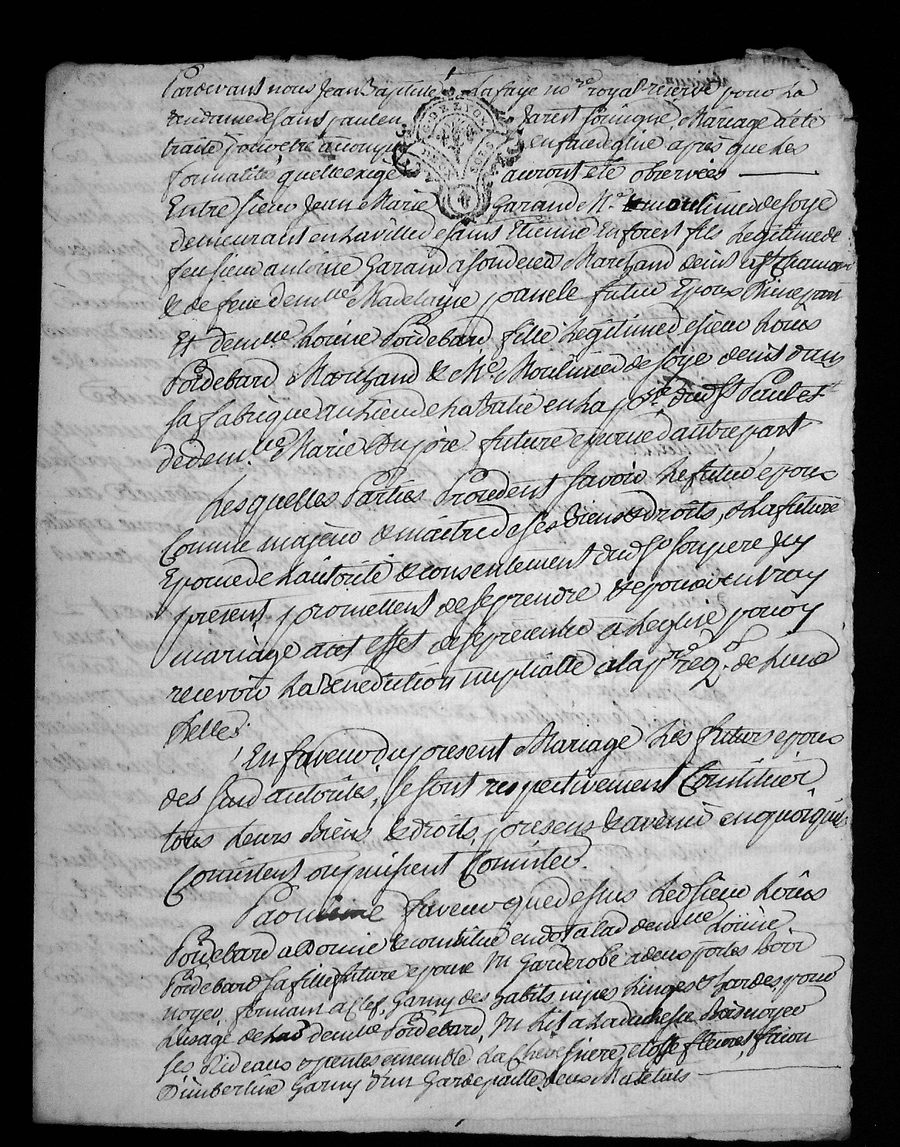 Pardevant nous Jean Baptiste Lafaye no.re royal reservé pour la
residence de saint paul en Jarest soussigné, Mariage a été
traité pour être accomply en face d'eglise après que les
formalités qu'elle exige auront été observées
DE LYON
Entre sieur Jean Marie Garand M.e moulinier de soye
demeurant en la ville de saint Etienne En forest fils legitime de
feu sieur antoine Garand a son deced Marchand de st Chamond
& de feue demlle Madelaine futur Epoux d'une part
Et demlle Louise Poidebard fille legitime de sieur Loüis
Poidebard Marchand & M.e Moulinier de soye demt dans
sa fabrique au lieu de en la p.sse dud st Paul et
de demlle Marie Dujore future epouse d'autre part
Lesquelles Parties Procedent sçavoir le futur époux
Comme majeur & maitre de ses Biens & droits, & la future
Epouse de l'autorité & consentement dud sr son pere icy
present, promettent de se prendre & epouser en vray
mariage a cet effet de se presenter a l'eglise pour y
recevoir la Benediction nuptialle a la pre req.on de l'un d
d'elles.
En faveur du present Mariage les futurs epoux
des susd autorités, se sont respectivement Constitués
tous leurs Biens & droits, presens & avenir en quoi qu'ils
Consistent ou puissent Consister.
Pour faveur que dessus led sieur Loüis
Poidebard a Donné & constitué en dot a lad demlle Loüise
Poidebard sa fille future epouse un Garderobe a deux portes Bois
noyer, fermant a Clef, Garny des habits nipes Linges & hardes pour
L'usage de lad demlle Poidebard, un Lit a la duchesse Bois noyer
ses Rideaux & pentes ensemble la Chevessiere, etoffe fleuret, façon
D'imberline Garny d'un Gardepaille, deux Matelats